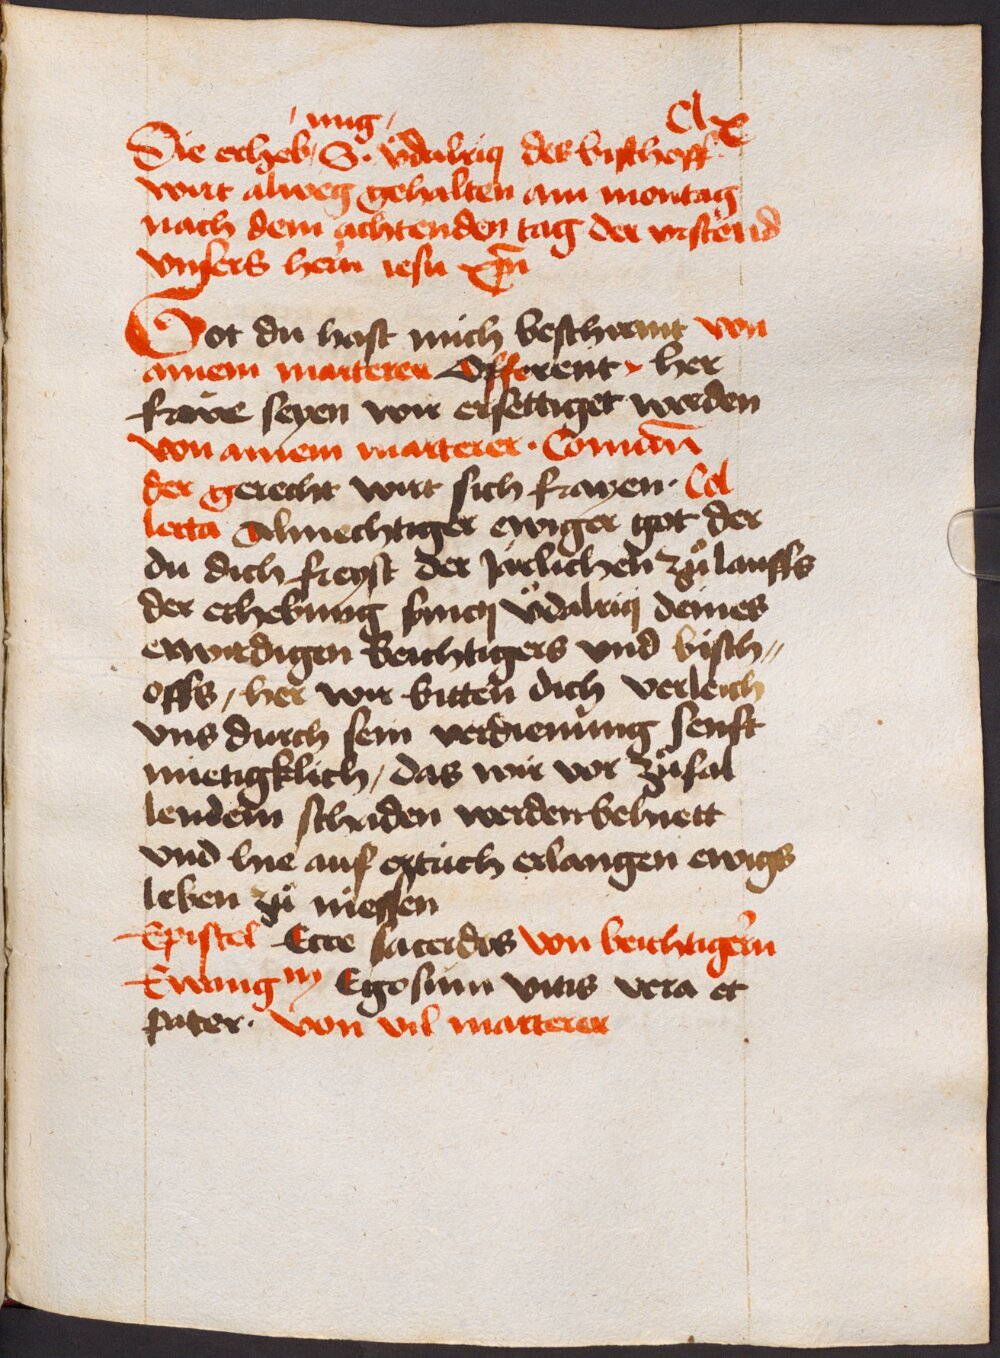 Clx
/ung/
Die erheb/ S. Vͦdalricj des bischoff
wirt alweg gehalten am montag
nach dem achtenden tag der vrstend
vnsers hern̄ iesu xp̄i
Got du hast mich beschirmt von
ainem marterer Offerent · her
früe seyen wir ersettiget worden
von ainem marterer · Comūn
der gerecht wirt sich frayen · Col
lecta Almechtiger ewiger got der
du dich freyst der Järlichen zuͦlauffs
der erhebung sancti Vͦdalricj deines
erwirdigen Beichtigers vnd bisch//
offs / her wir bitten dich verleich
vns durch sein verdienung senft
mietigklich / das wir vor zuͦfal
lendem schaden werden behuett
vnd hie auf ertrich erlangen ewigs
leben zuͦ niessen
Epistel Ecce sacerdos von beichtigern
Ewangm Ego sum vitis vera et
pater · von vil marterer